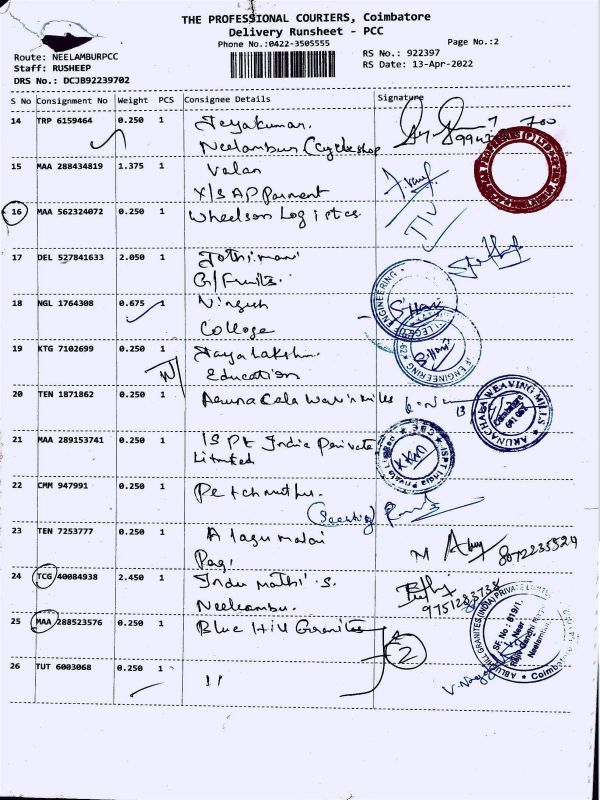 THE PROFESSIONAL COURIERS, Coimbatore
Delivery Runsheet - PCC
Phone No.:0422-3505555
Page No.:2
Route: NEELAMBURPCC
Staff: RUSHEEP
DRS No.: DCJB92239702
RS No.: 922397
RS Date: 13-Apr-2022
S No Consignment No Weight PCS Consignee Details Signature
14 TRP 6159464 0.250 1 Jeyakumar.
Neelambur (Cycleshop
15 MAA 288434819 1.375 1 Valan
X/S APParment
16 MAA 562324072 0.250 1 Wheelson Logistcs
17 DEL 527841633 2.050 1 Jothimani
G/Fruits.
18 NGL 1764308 0.675 1
College
19 KTG 7102699 0.250 1 Jayalakshmi
Education
20 TEN 1871862 0.250 1
ARUNACHALA WEAVING MILLS
Coimbatore
641 062
21 MAA 289153741 0.250 1 ISPT India Private
Limited
22 CMM 947991 0.250 1 Petchmuthu.
(Security)
23 TEN 7253777 0.250 1 Alagumalai
24 TCG 40084938 2.450 1 Indumathi.S.
Neelambu.
9751283738
25 MAA 288523576 0.250 1 Blue Hill Granites
2
26 TUT 6003068 0.250 1 11
SF.No : 819/1,
V. Nagaj